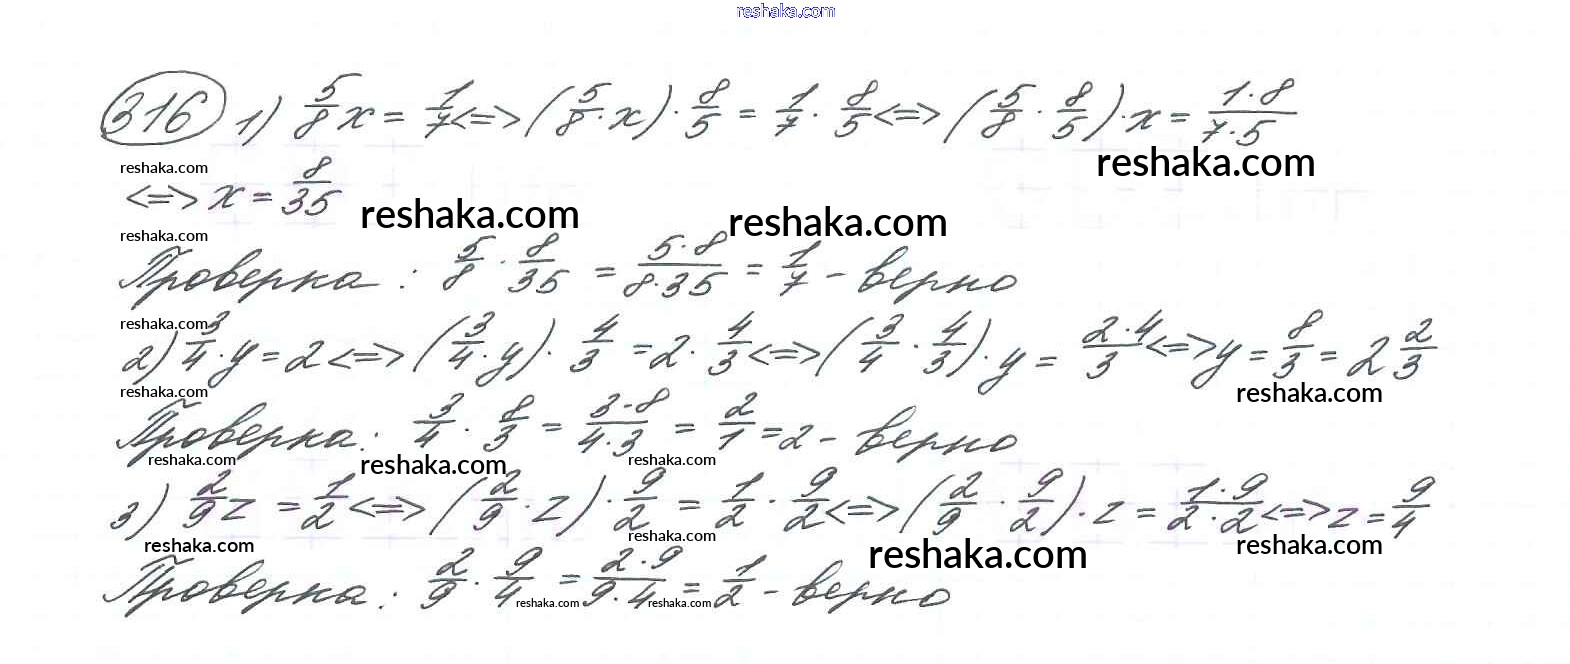 reshaka.com
316 1) 5/8 x = 1/7 <=> (5/8 · x) · 8/5 = 1/7 · 8/5 <=> (5/8 · 8/5) · x = 1·8/7·5
reshaka.com reshaka.com
<=> x = 8/35 reshaka.com reshaka.com
reshaka.com
Проверка: 5/8 · 8/35 = 5·8/8·35 = 1/7 - верно
reshaka.com
2) 3/4 · y = 2 <=> (3/4 · y) · 4/3 = 2 · 4/3 <=> (3/4 · 4/3) · y = 2·4/3 <=> y = 8/3 = 2 2/3
reshaka.com reshaka.com
Проверка: 3/4 · 8/3 = 3·8/4·3 = 2/1 = 2 - верно
reshaka.com reshaka.com reshaka.com
3) 2/9 z = 1/2 <=> (2/9 · z) · 9/2 = 1/2 · 9/2 <=> (2/9 · 9/2) · z = 1·9/2·2 <=> z = 9/4
reshaka.com reshaka.com reshaka.com reshaka.com
Проверка: 2/9 · 9/4 = 2·9/9·4 = 1/2 - верно
reshaka.com reshaka.com